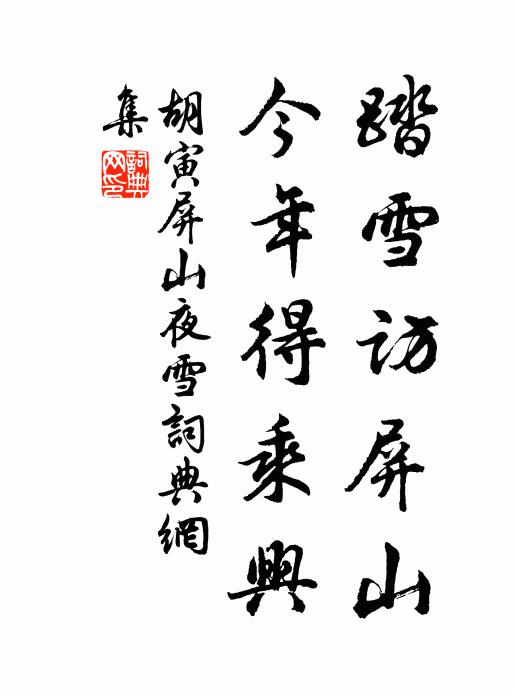 踏雪訪屏山
今年得乘興
胡寅屏山夜雪詞典網
集
詞典
网印